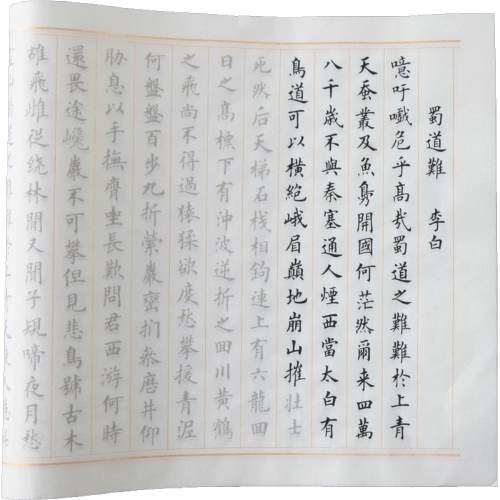 蜀道難 李白
噫吁嚱危乎高哉蜀道之難難於上青
天蚕叢及魚鳧開國何茫然爾来四萬
八千歲不與秦塞通人煙西當太白有
鳥道可以橫絕峨眉巔地崩山摧壮士
死然后天梯石栈相鉤連上有六龍回
日之高標下有沖波逆折之回川黄鶴
之飛尚不得過猿猱欲度愁攀援青泥
何盤盤百步九折縈巖巒扪參歷井仰
胁息以手撫膺坐長歎問君西游何時
還畏途巉巖不可攀但見悲鳥號古木
雄飛雌從繞林間又聞子規啼夜月愁